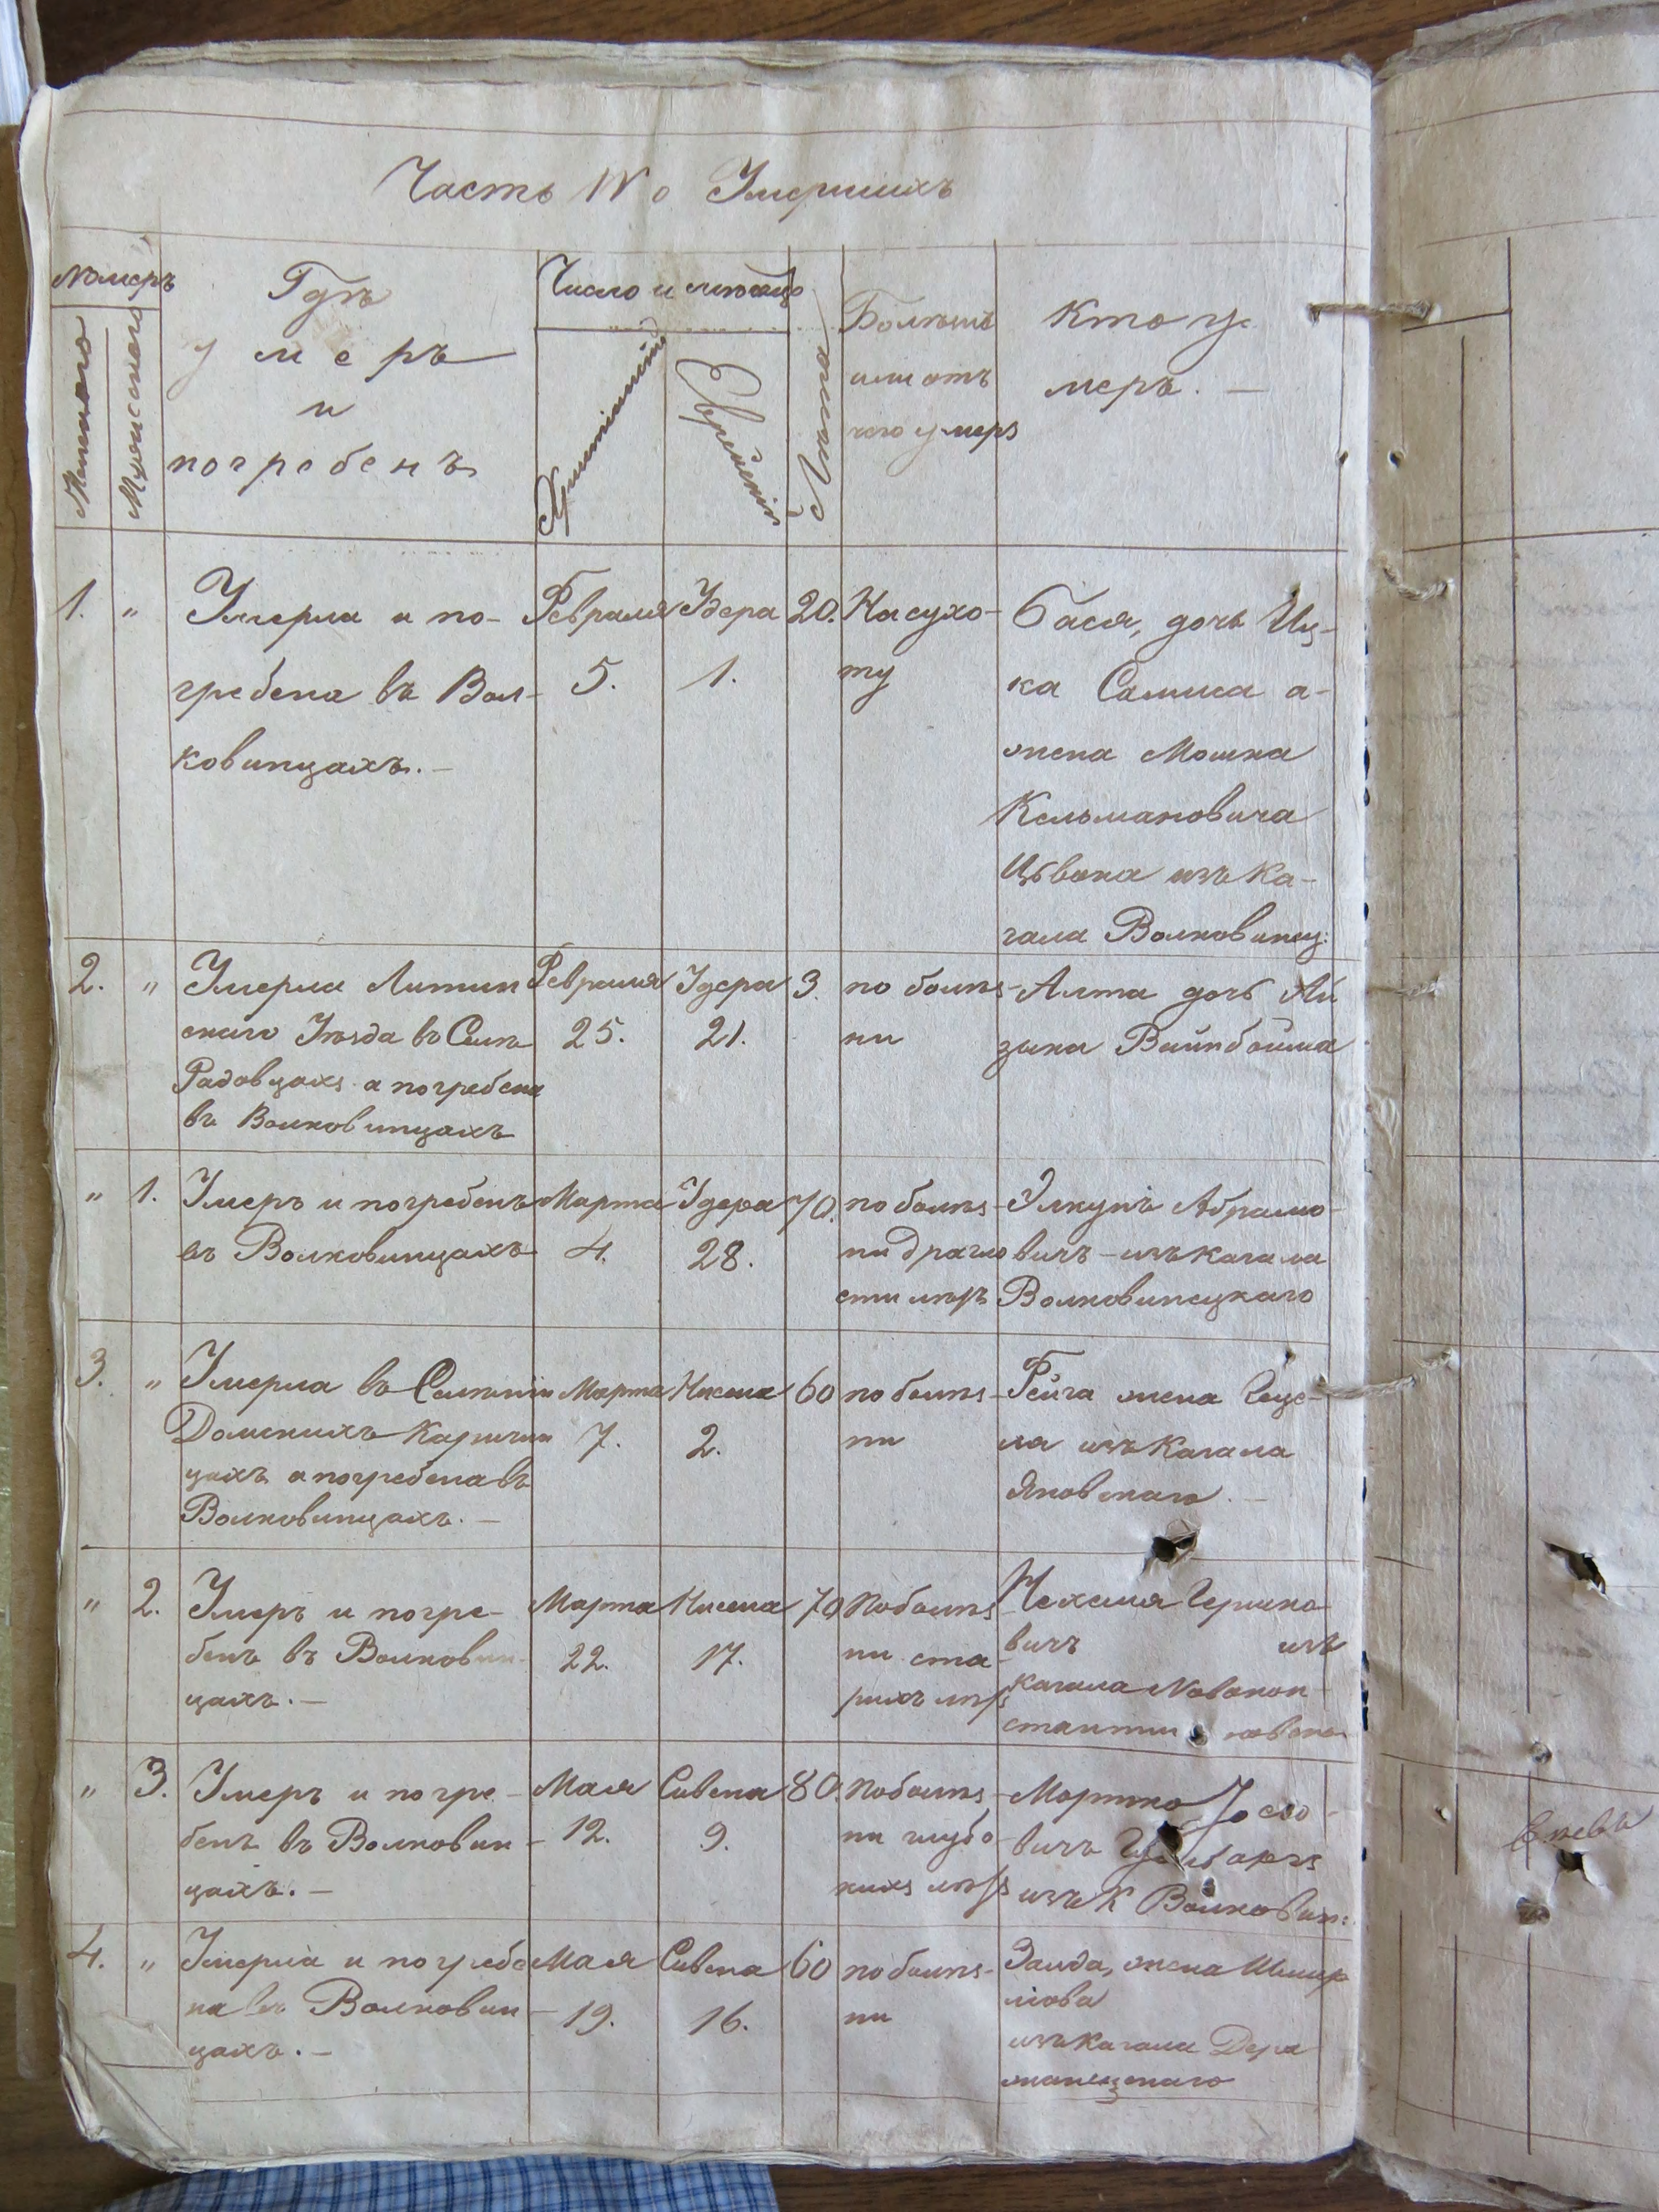 Часть IV о Умершихъ
Номеръ
Женскаго
Мужескаго
Гдѣ
умеръ
и
погребенъ
Число и мѣсяцъ
Христіанскій
Еврейскій
Лѣта
Болѣзнь
или отъ
чего умеръ
Кто у-
меръ. —
1. " Умерла и по-
гребена въ Вол-
ковинцахъ. —
Февраля
5.
Удера
1.
20.
На сухо-
ту
Бася, дочь Иц-
ка а-
жена Мошка
Кельмановича
изъ Ка-
гала Волковинец:
2. " Умерла Литин
скаго Уѣзда въ Селѣ
Радовцахъ а погребена
въ Волковинцахъ
Февраля
25.
Удера
21.
3.
по болѣз-
ни
Алта дочь Ай
зыка Вайнбойма
" 1. Умеръ и погребенъ
въ Волковинцахъ
Марта
4.
Удера
28.
70.
по болѣз-
ни
Элкунъ Абрамо-
вичъ — изъ кагала
Волковинецкаго
3. " Умерла въ Селѣніи
цахъ а погребена въ
Волковинцахъ. —
Марта
7.
Нисена
2.
60
по болѣз-
ни
Фейга жена
ля изъ Кагала
Яновскаго. —
" 2. Умеръ и погре-
бенъ въ Волковин-
цахъ. —
Марта
22.
Нисена
17.
70
По болѣз
ни ста-
рихъ лѣтъ
Нехемя Гершко
вичъ изъ
кагала Новокон-
стантин овска
" 3. Умеръ и погре-
бенъ въ Волковин-
цахъ. —
Мая
12.
Сивена
9.
80.
По болѣз-
ни глубо-
кихъ лѣтъ
Мортко Іосо-
вичъ
изъ К Волковин:
4. " Умерла и погребе
на въ Волковин-
цахъ. —
Мая
19.
Сивена
16.
60
по болѣз-
ни
жена
изъ кагала Дера